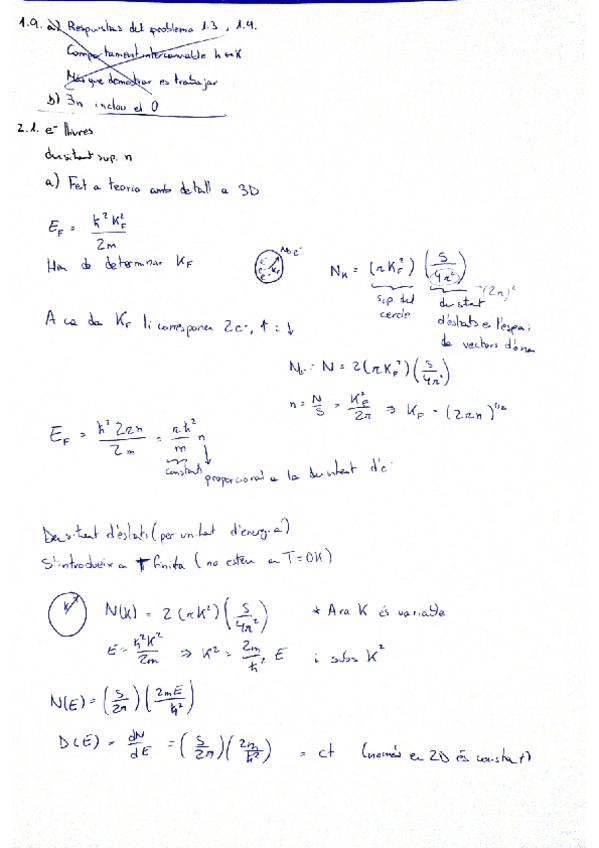 1.9. a) Respuestas del problema 1.3, 1.4.
Comportament intercanviable h ↔ K
Más que demostrar es trabajar
b) 3n inclou el 0
2.1. e⁻ lliures
densitat sup. n
a) Fet a teoria amb detall a 3D
E_F = ħ² K_F² / 2m
Han de determinar K_F
N_K = (πK_F²) (S / 4π²)
(2π)²
sup. del cercle
densitat d'estats e l'espai de vectors d'ona
A ca da K_F li corresponen 2e⁻, ↑ i ↓
N = 2(πK_F²)(S / 4π²)
n = N/S = K_F² / 2π ⇒ K_F = (2πn)^{1/2}
E_F = ħ² 2πn / 2m = πħ² / m n
constants
proporcional a la densitat d'e⁻
Densitat d'estats (per unitat d'energia)
S'introdueix a T finita (no estem a T=0K)
K
N(K) = 2(πK²)(S / 4π²) * Ara K és variable
E = ħ²K² / 2m ⇒ K² = 2m / ħ² E i subs K²
N(E) = (S / 2π)(2mE / ħ²)
D(E) = dN/dE = (S / 2π)(2m / ħ²) = ct (només en 2D és constant)